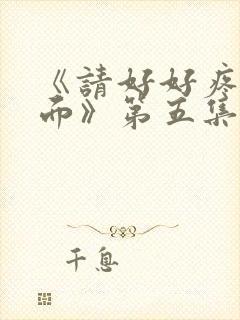 《請好好疼
而》第五集
千息